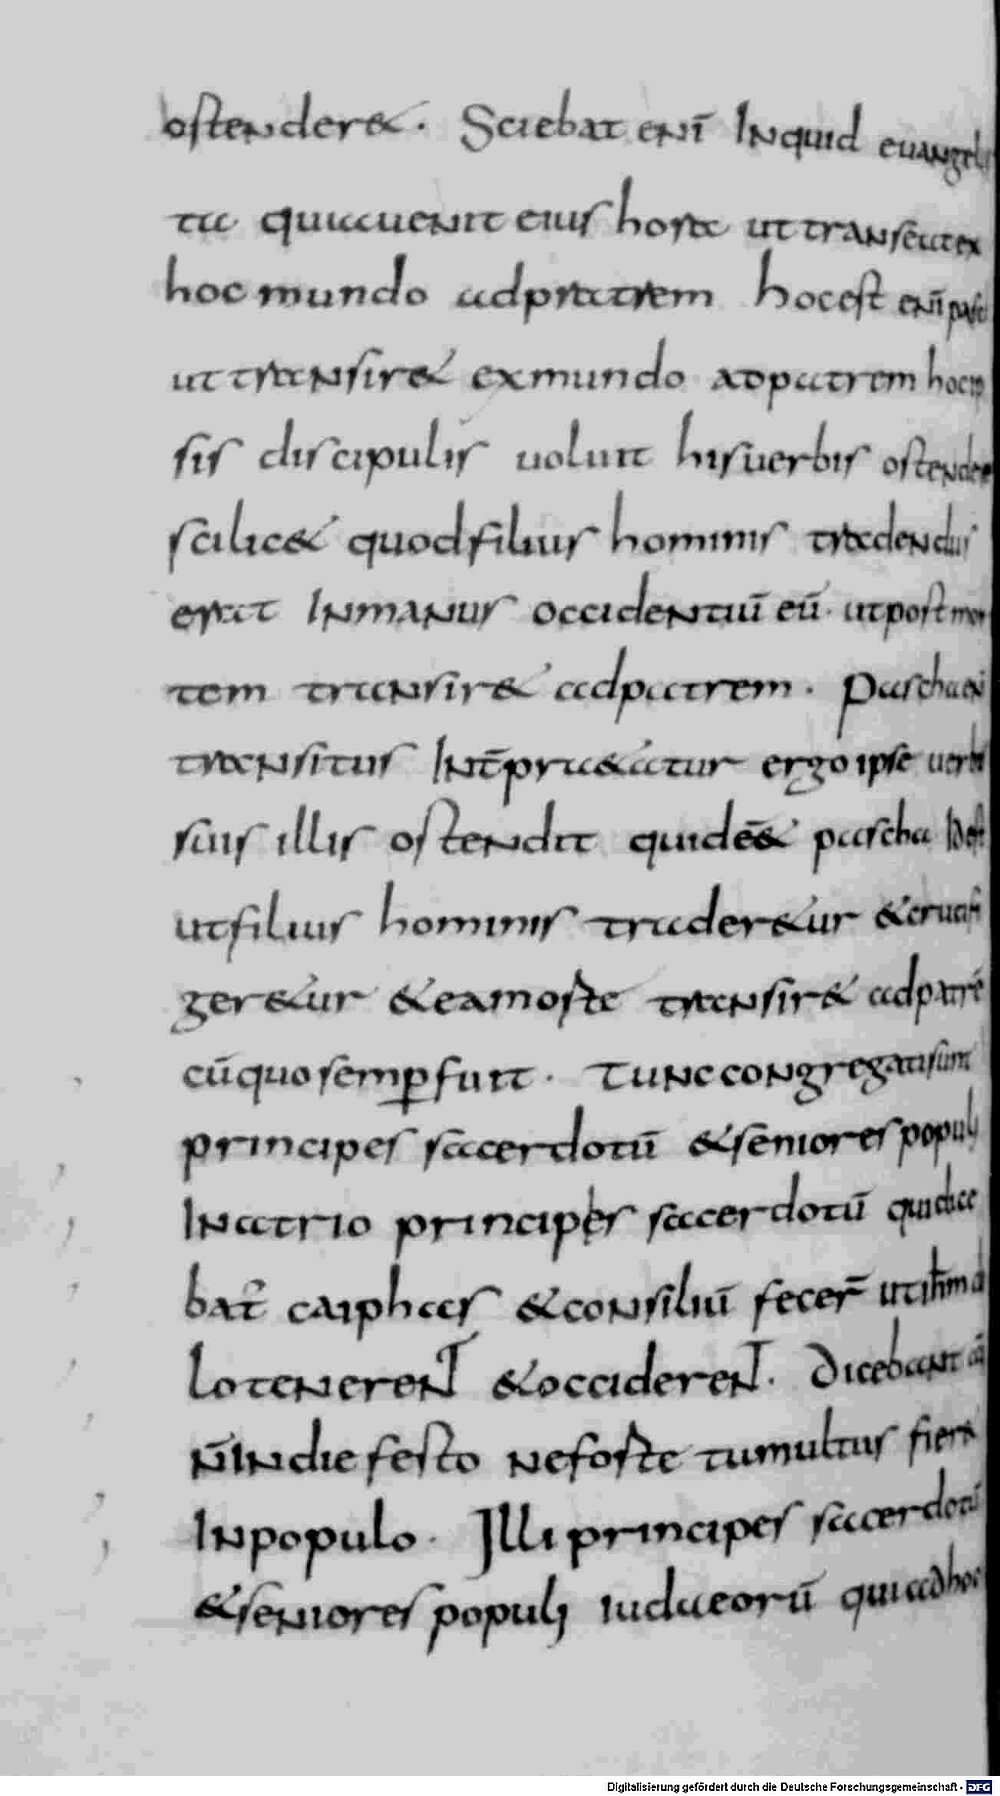 ostender&. Sciebat enī Inquid euangeli
ta quia uenit eius hora ut transeat ex
hoc mundo ad patrem hoc est enī pasc
ut transir& ex mundo ad patrem hoc ip
sis discipulis uoluit his uerbis ostender
scilic& quod filius hominis tradendus
erat In manus occidentiū eū. ut post mor
tem transir& ad patrem. Pascha eni
transitus Int̄pra&atur ergo ipse uerbi
suis illis ostendit quidēē pascha Id est
ut filius hominis trader&ur &crucifi
ger&ur &ea moste transir& ad patrē
cū quo semp fuit. Tunc congregati sunt
principes sacerdotū &seniores populi
In atrio principes sacerdotū qui dice
bat̄ caiphas &consiliū fecer̄ ut ih̄m
lo tenerent &occiderent. Dicebant
n̄ In die festo ne foste tumultus fier&
In populo. Illi principes sacerdotū
&seniores populi iudaeorū qui ad hoc